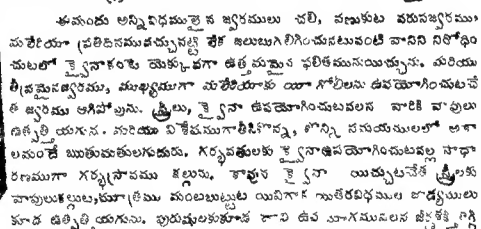 ఈమందు అన్నివిధములైన జ్వరములు చలి, వణుకుట వరుసజ్వరము,
మలేరియా (ప్రతిదినమువచ్చునట్టి లేక జలుబుగలిగించునటువంటి వానిని నిరోధిం
చుటలో క్వైనాకంటె యెక్కువగా ఉత్తమమైన ఫలితమునుయిచ్చును. మరియు
తీవ్రమైనజ్వరము, ముఖ్యముగా మలేరియాకు యీ గోలీలను ఉపయోగించుటచే
త జ్వరము ఆగిపోవును. స్త్రీలు, క్వైనా ఉపయోగించుటవలన వారికి వాపులు
ఉత్పత్తి యగును. మరియు విశేషముగాతీసికొన్న, కొన్ని సమయములలో అకా
లమందే ఋతుమతులగుదురు. గర్భవతులకు క్వైనాఉపయోగించుటవల్ల సాధా
రణముగా గర్భస్రావము కల్గును. కావున క్వైనా యిచ్చుటచేత స్త్రీలకు
వాపులుకల్గుట, మూత్రము మంటబుట్టుట యివిగాక యితరవిధముల జాడ్యములు
కూడ ఉత్పత్తి యగును. పురుషులకుకూడ దాని ఉప యోగమువలన జీర్ణశక్తి